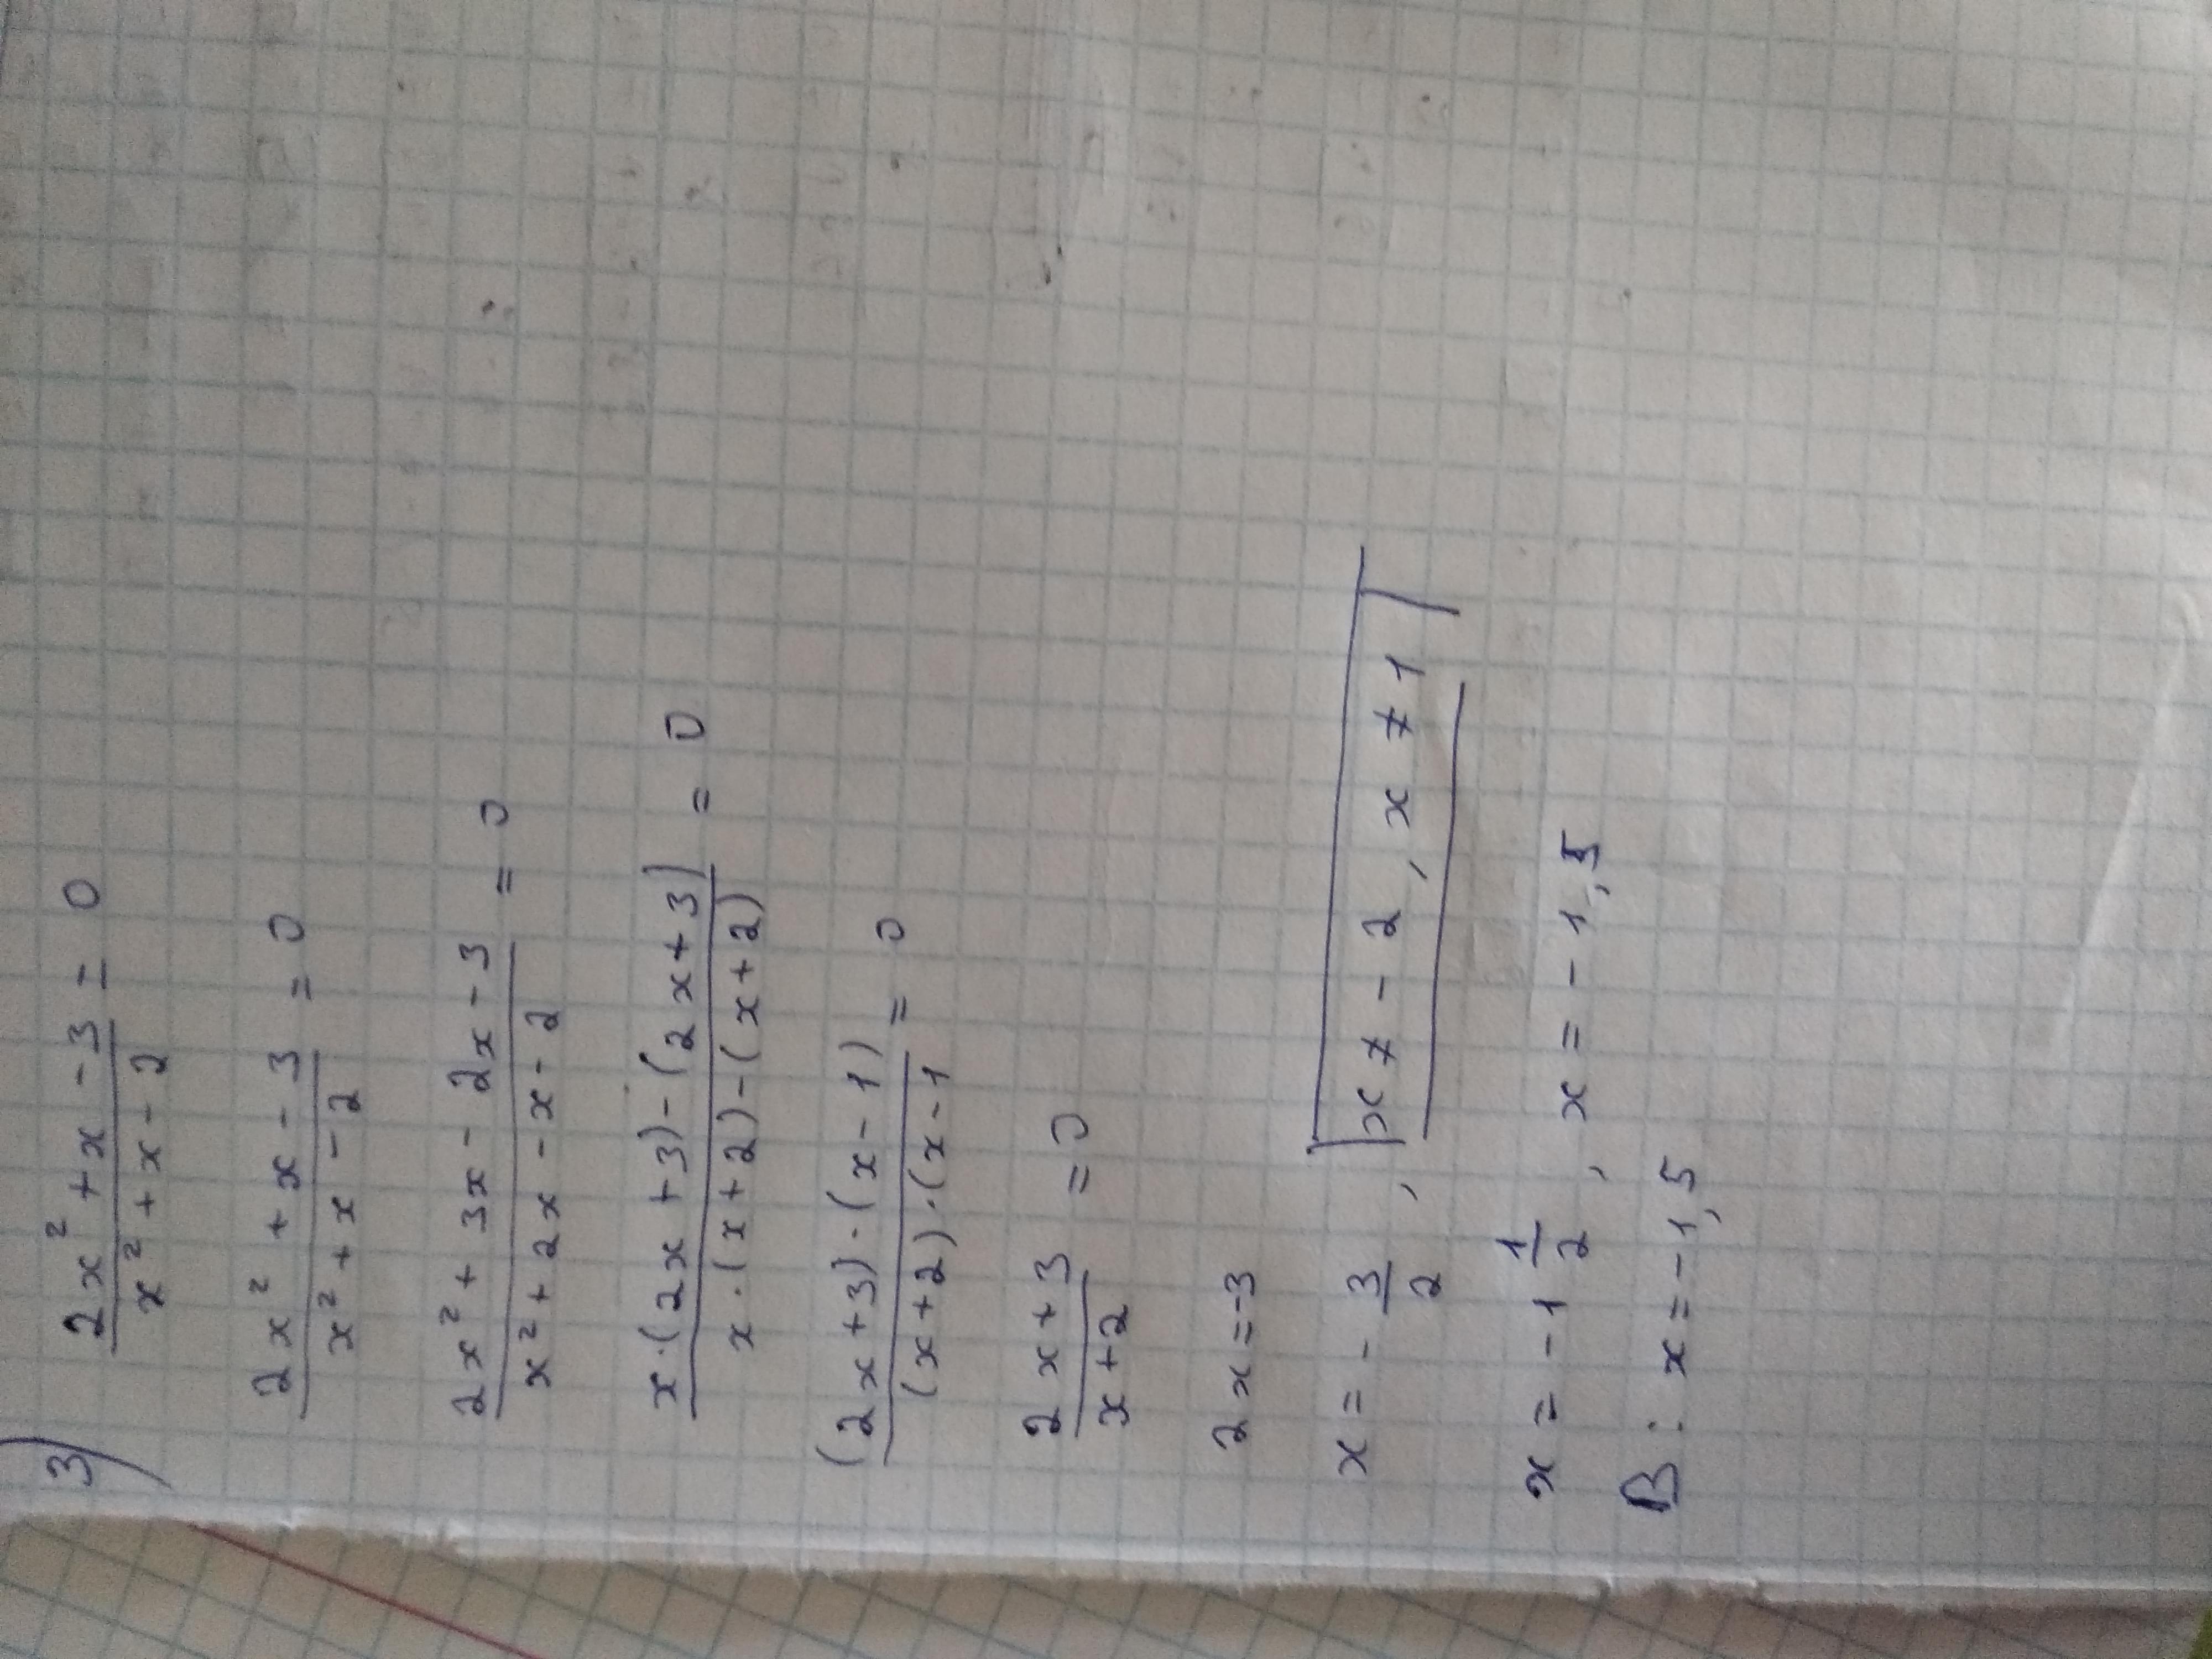 3) (2x² + x - 3)/(x² + x - 2) = 0
(2x² + x - 3)/(x² + x - 2) = 0
(2x² + 3x - 2x - 3)/(x² + 2x - x - 2) = 0
(x·(2x + 3) - (2x + 3))/(x·(x + 2) - (x + 2)) = 0
((2x + 3)·(x - 1))/((x + 2)·(x - 1) = 0
(2x + 3)/(x + 2) = 0
2x = -3
x = - 3/2, x ≠ - 2, x ≠ 1
x = -1 1/2, x = -1,5
В: x = -1,5